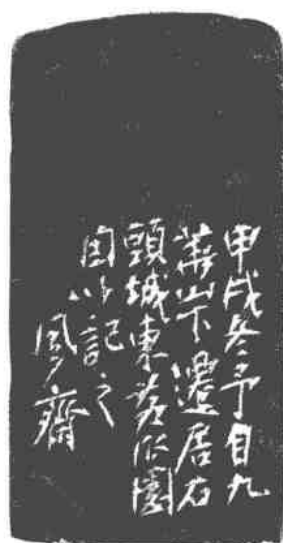 甲戌冬予自九
華山下遷居石
頭城東園
因以記之
風齋